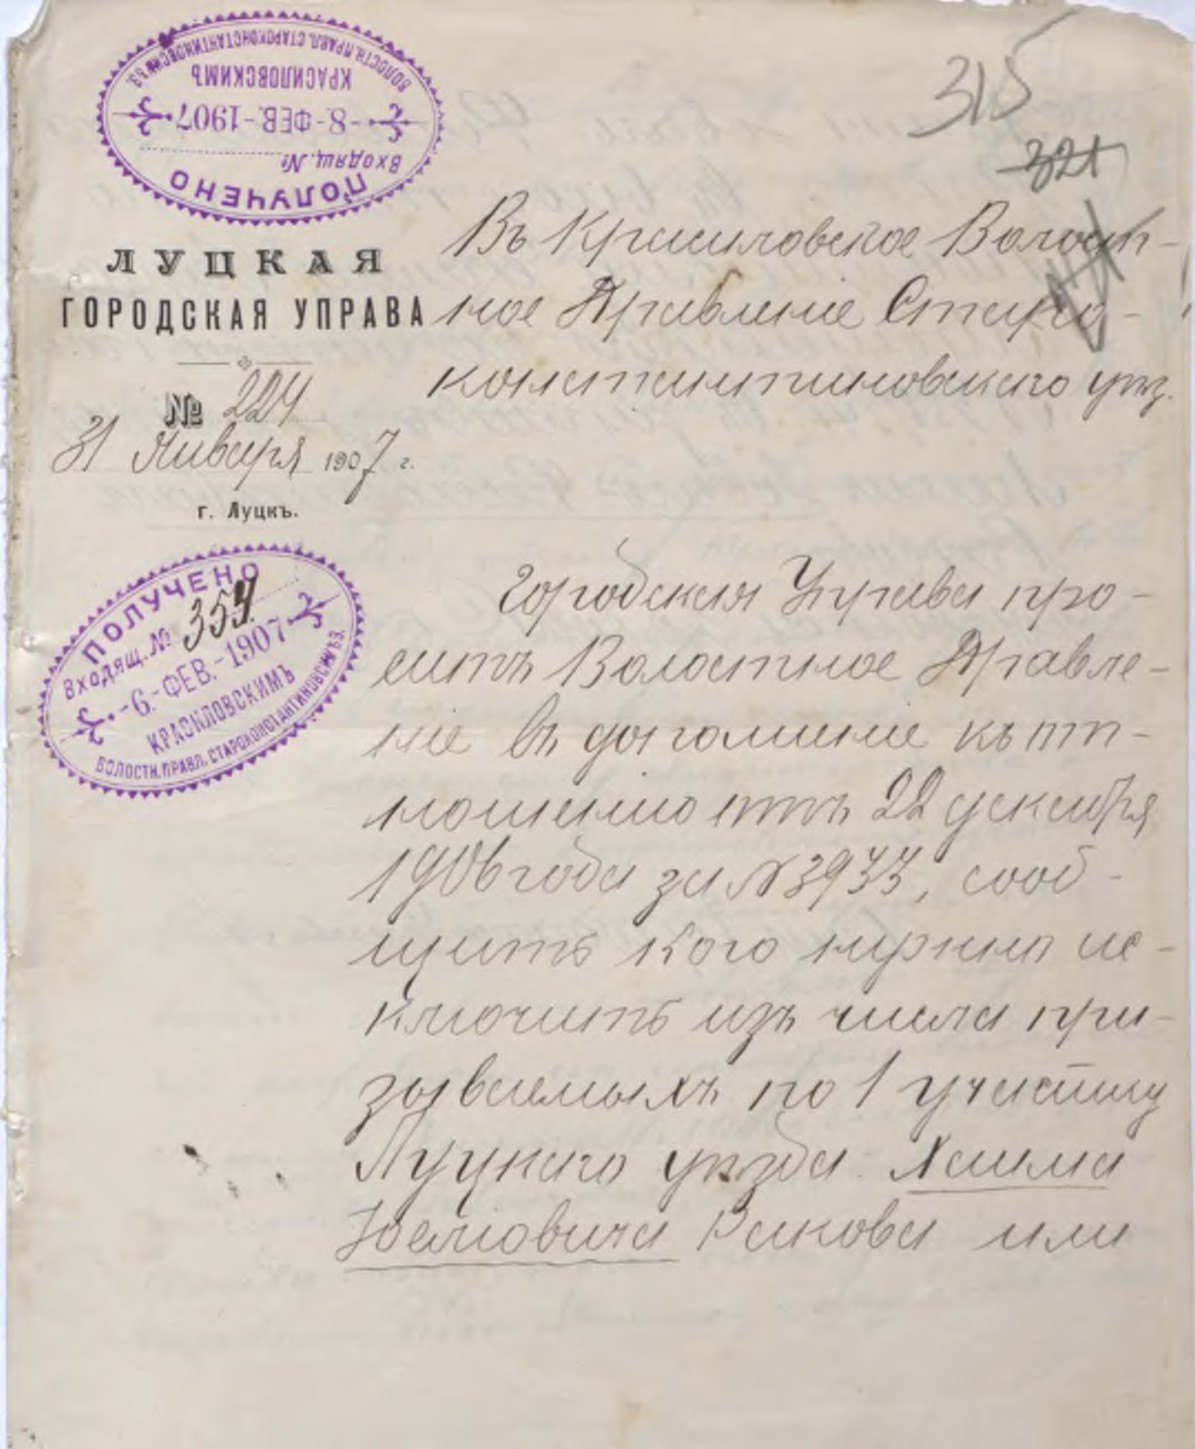 ПОЛУЧЕНО
Входящ. №
-8-ФЕВ.-1907
КРАСИЛОВСКИМЪ
ВОЛОСТН. ПРАВЛ. СТАРОКОНСТАНТИНОВСК. УѢЗ.
315
321
ЛУЦКАЯ
ГОРОДСКАЯ УПРАВА
№ 224
31 Января 1907 г.
г. Луцкъ.
Въ Красиловское Волост-
ное Правленіе Старо-
константиновскаго уѣз.
ПОЛУЧЕНО
Входящ. № 354
-6.-ФЕВ.-1907
КРАСИЛОВСКИМЪ
ВОЛОСТН. ПРАВЛ. СТАРОКОНСТАНТИНОВСК. УѢЗ.
Городская Управа про-
ситъ Волостное Правле-
ніе въ дополненіе къ от-
ношенію отъ 22 декабря
1906 года за № 3933, сооб-
щить кого нужно ис-
ключить изъ числа при-
зываемыхъ по 1 участку
Луцкаго уѣзда Хаима
Іоеліовича Ракова или